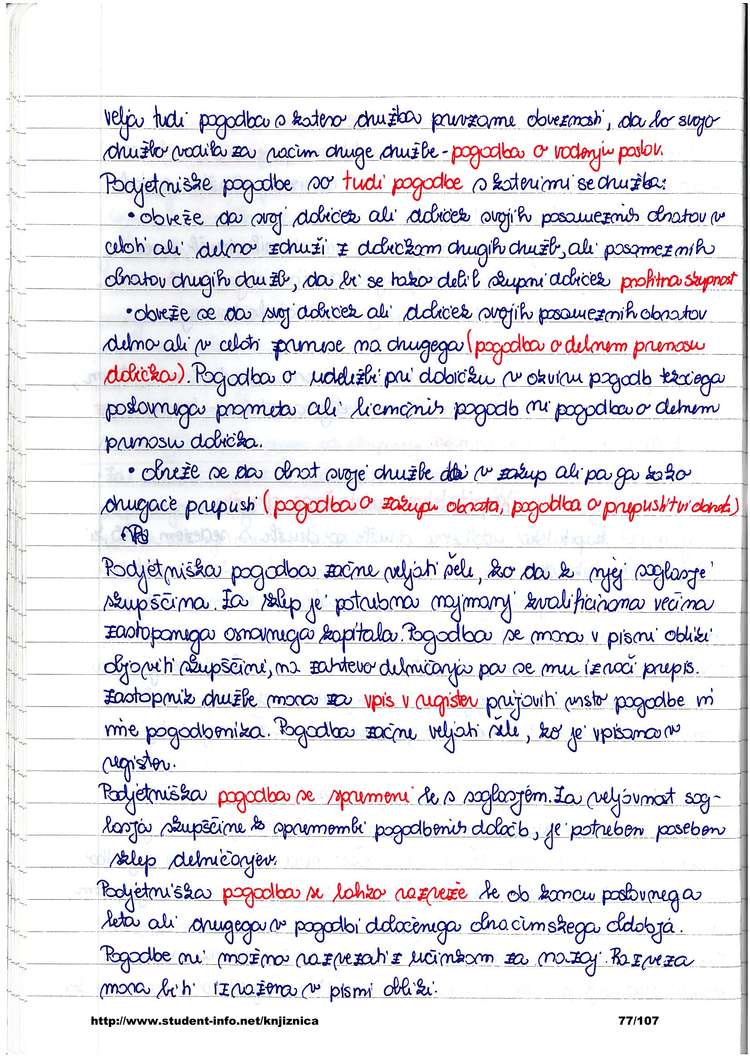 velja tudi pogodba s katero družba prevzame obveznost, da bo svojo
družbo vodila za račun druge družbe - pogodba o vodenju poslov.
Podjetniške pogodbe so tudi pogodbe s katerimi se družba:
• obveže da svoj dobiček ali dobiček svojih posameznih obratov v
celoti ali delno združi z dobičkom drugih družb, ali posameznih
obratov drugih družb, da bi se tako delil skupni dobiček profitna skupnost
• obveže se da svoj dobiček ali dobiček svojih posameznih obratov
delno ali v celoti prenese na drugega (pogodba o delnem prenosu
dobička). Pogodba o udeležbi pri dobičku v okviru pogodb tekočega
poslovnega prometa ali licenčnih pogodb ni pogodba o delnem
prenosu dobička.
• obveže se da obrat svoje družbe da v zakup ali pa ga kako
drugače prepusti (pogodba o zakupu obrata, pogodba o prepustitvi obrata)
Podjetniška pogodba začne veljati šele, ko da k njej soglasje
skupščina. Za sklep je potrebna najmanj kvalificirana večina
zastopanega osnovnega kapitala. Pogodba se mora v pisni obliki
objaviti skupščini, na zahtevo delničarja pa se mu izroči prepis.
Zastopnik družbe mora za vpis v register prijaviti vrsto pogodbe in
ime pogodbenika. Pogodba začne veljati šele, ko je vpisana v
register.
Podjetniška pogodba se spremeni le s soglasjem. Za veljavnost sog-
lasja skupščine k spremembi pogodbenih določb, je potreben poseben
sklep delničarjev.
Podjetniška pogodba se lahko razveže le ob koncu poslovnega
leta ali drugega v pogodbi določenega obračunskega obdobja.
Pogodbe ni možno razvezati z učinkom za nazaj. Razveza
mora biti izražena v pismi obliki.
http://www.student-info.net/knjiznica 77/107